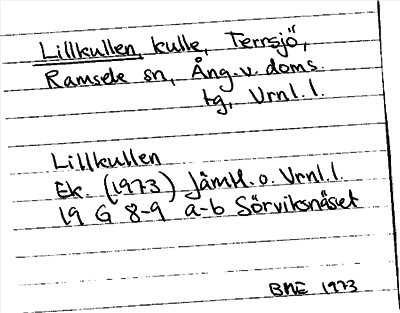 Lillkullen, kulle, Terrsjö,
Ramsele sn, Ång.v. doms.
tg, Vrnl.l.
Lillkullen
Ek. (1973) Jämtl. o. Vrnl.l.
19 G 8-9 a-b Sörviksnäset
BME 1973